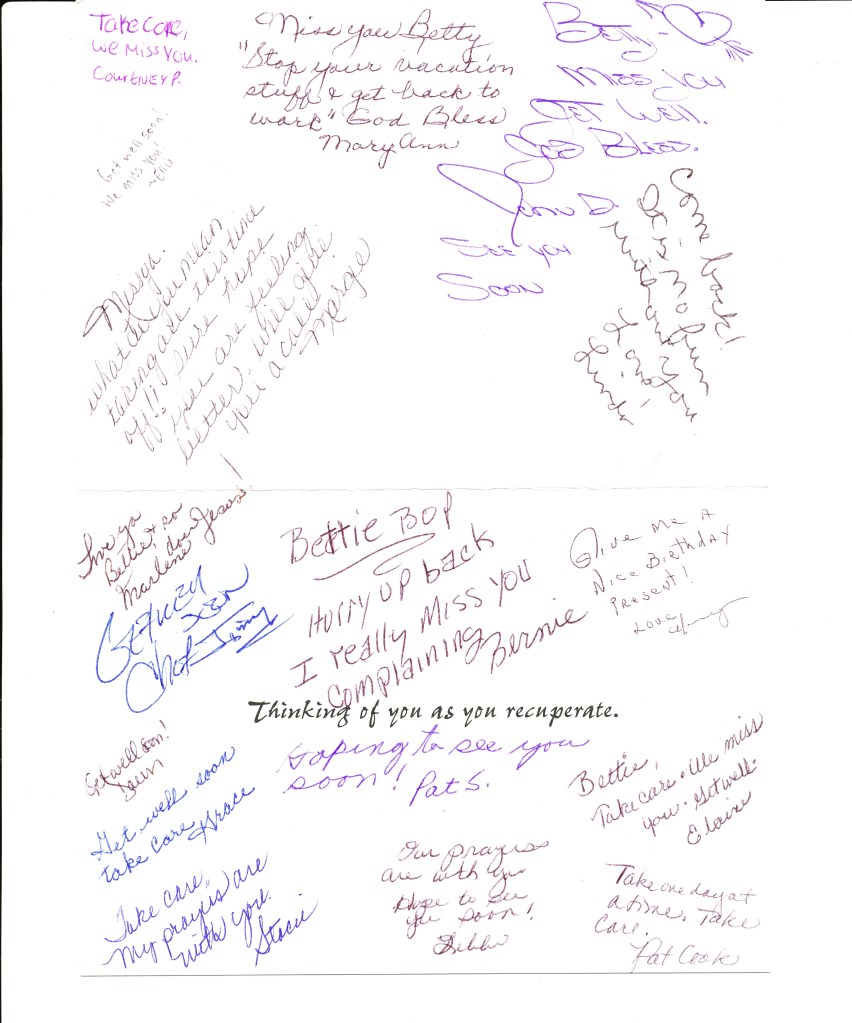 Take Care,
We Miss You.
Courtney P.
Miss you Betty
"Stop your vacation
stuff & get back to
work" God Bless
Mary Ann
Betty-
Miss you
Get Well.
God Bless.
D.
See you
Soon
Get well soon!
We miss you!
Come back!
It is no fun
without you
Linda
Miss ya.
What do you mean
taking all this time
off!! I sure hope
you are feeling
better. will give
you a call.
Margie
Love ya
Bettie & so
does Jesus!
Marlene
Get Well
Soon
Chef Jimmy
Bettie Bop
Hurry up back
I really Miss you
complaining
Bernie
Give me A
Nice Birthday
Present!
Love,
Thinking of you as you recuperate.
Get well soon!
Dawn
Hoping to see you
soon! Pat S.
Bettie,
Take care. We miss
you. Get well.
Elaine
Get well soon
Take care, Grace
Take care,
My prayers are
with you.
Stacie
Our prayers
are with you
Hope to see
you soon!
Debbie
Take one day at
a time. Take
Care.
Pat Cook